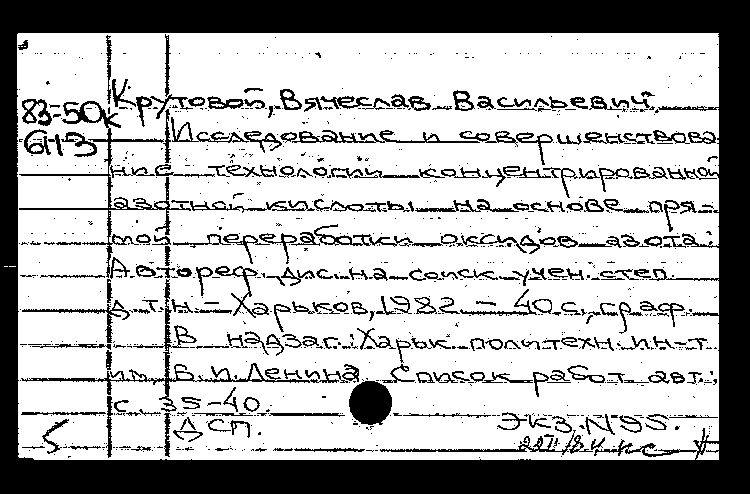 Крутовой, Вячеслав Васильевич.
83-50к
6113
Исследование и совершенствова
ние технологии концентрированной
азотной кислоты на основе пря-
мой переработки оксидов азота:
Автореф. дис. на соиск. учен. степ.
д.т.н. - Харьков, 1982 - 40 с., граф.
В надзаг.: Харьк. политехн. ин-т
им. В.И. Ленина. Список работ авт.:
с. 35-40.
ДСП.
Экз. N 95.
5